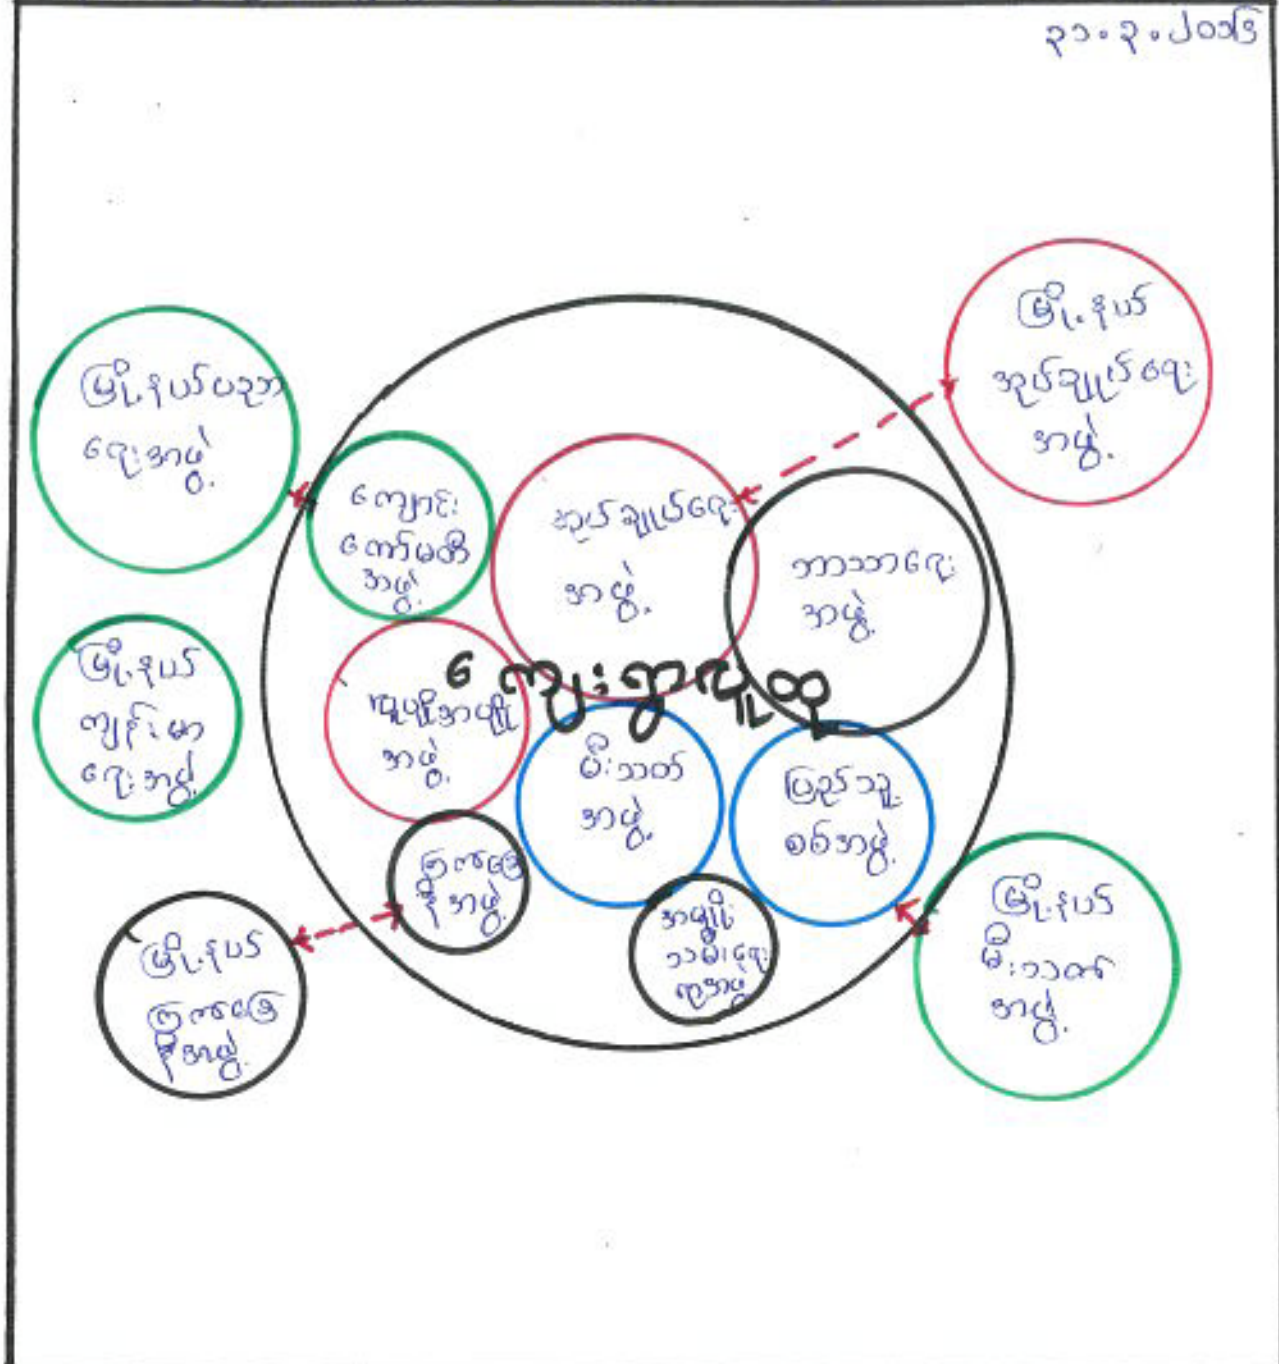 ၃၁.၃.၂၀၁၆
မြို့နယ်
အုပ်ချုပ်ရေး
အဖွဲ့
မြို့နယ်ပညာ
ရေးအဖွဲ့
ကျောင်း
ကော်မတီ
အဖွဲ့
အုပ်ချုပ်ရေး
အဖွဲ့
ဘာသာရေး
အဖွဲ့
ကျေးရွာလူထု
မြို့နယ်
ကျန်းမာ
ရေးအဖွဲ့
အဖွဲ့
မီးသတ်
အဖွဲ့
ပြည်သူ့
စစ်အဖွဲ့
ကြက်ခြေ
နီအဖွဲ့
အမျိုး
သမီးရေး
ရာအဖွဲ့
မြို့နယ်
မီးသတ်
အဖွဲ့
မြို့နယ်
ကြက်ခြေ
နီအဖွဲ့